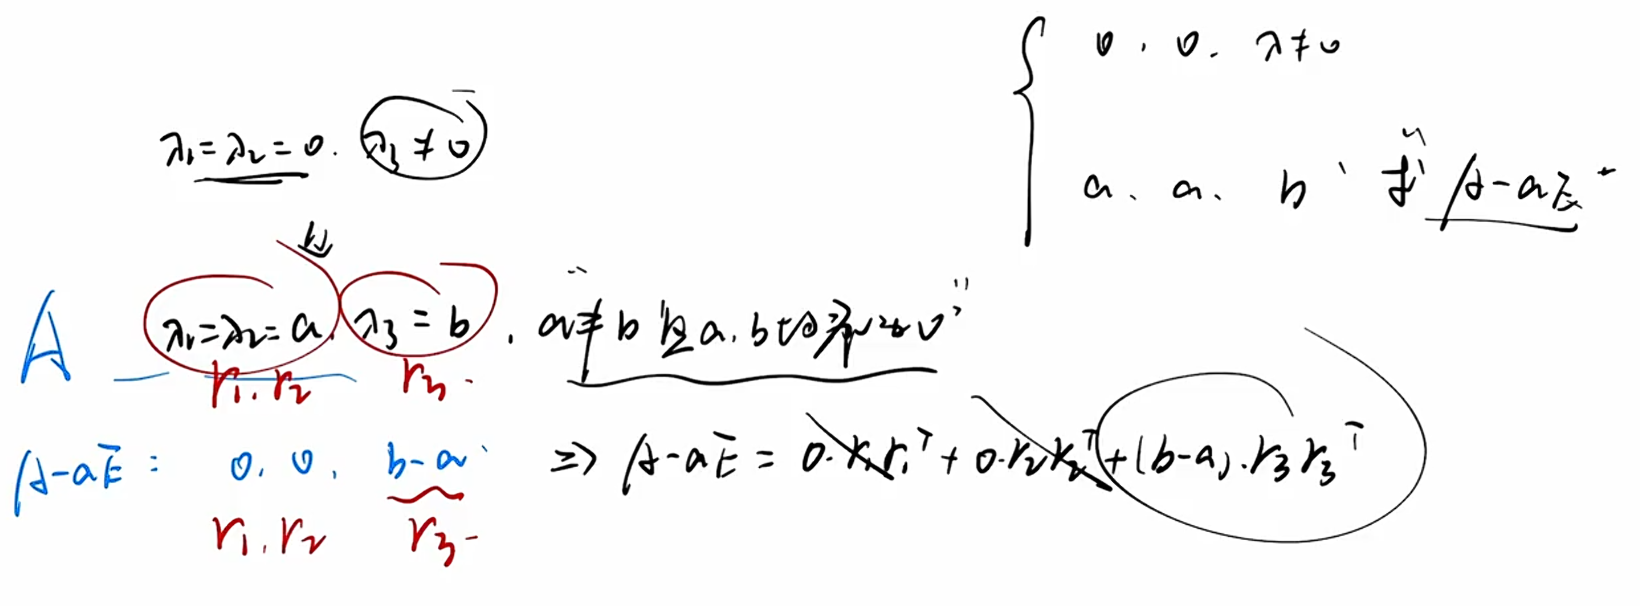 0, 0, λ≠0
λ₁=λ₂=0. λ₃≠0
a, a, b, 求 A-aE
A λ₁=λ₂=a, λ₃=b, a≠b 且 a,b 均不为0
r₁, r₂ r₃
A-aE: 0, 0, b-a ⇒ A-aE = 0·r₁r₁ᵀ + 0·r₂r₂ᵀ + (b-a)·r₃r₃ᵀ
r₁, r₂ r₃